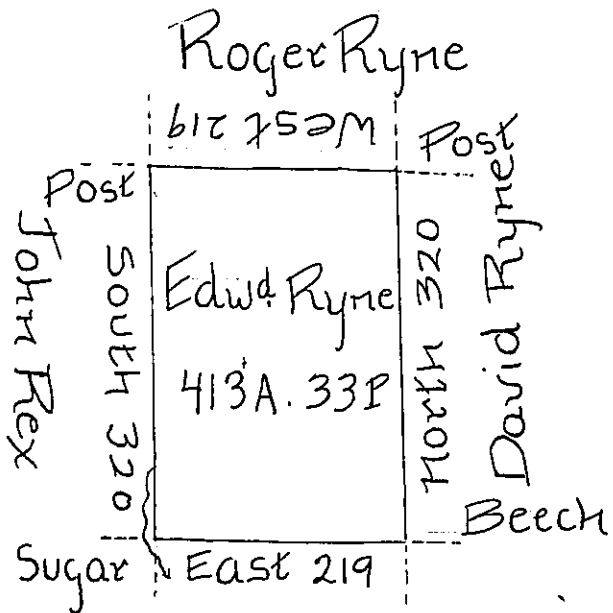 Roger Ryne
West 219
Post
Post
John Rex
South 320
Edwd. Ryne
413A. 33P
North 320
David Ryne
Beech
Sugar
East 219